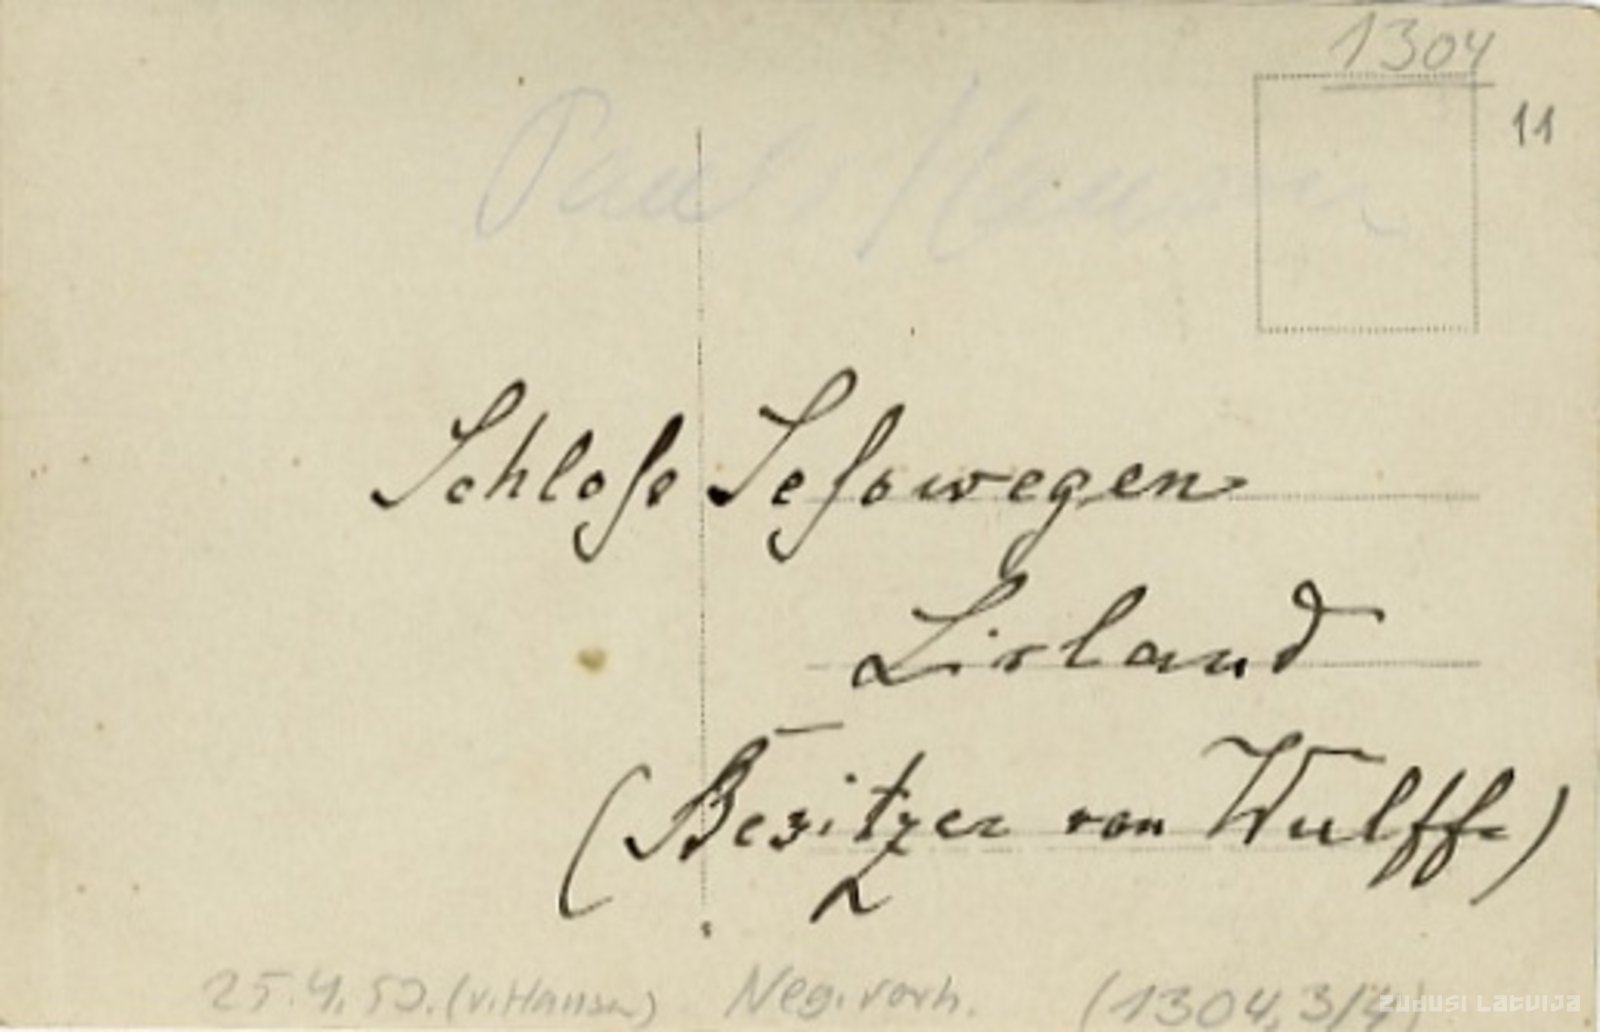 1304
11
Schloß Seßwegen
Livland
(Besitzer von Wulff)
25.4.52. (v. Hansen) Neg. vorh. (1304, 3/4)
Zudusi Latvija